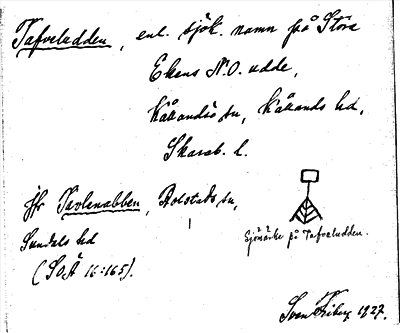 Tafveludden, enl. sjök. namn på Stora
Ekens N.O. udde,
Kållandsö sn, Kållands hd,
Skarab. l.
Jfr Tavlanabben, Bolstads sn,
Sundals hd
(SOÄ 16:165).
Sjömärke på Tafveludden.
Sven Friberg 1927.